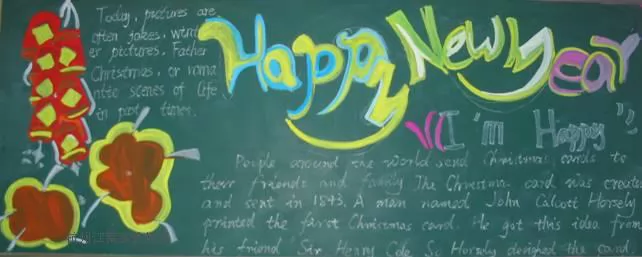 Today, pictures are
often jokes, wint
er pictures, Father
Christmas, or roma
ntic scenes of life
in past times.
Happy New Year
"I'm Happy"
People around the world send Christmas cards to
their friends and family The Christmas card was create
and sent in 1843. A man named John Calcott Horsely
printed the first Christmas card. He got this idea from
his friend Sir Henry Cole So Horsely designed the card.